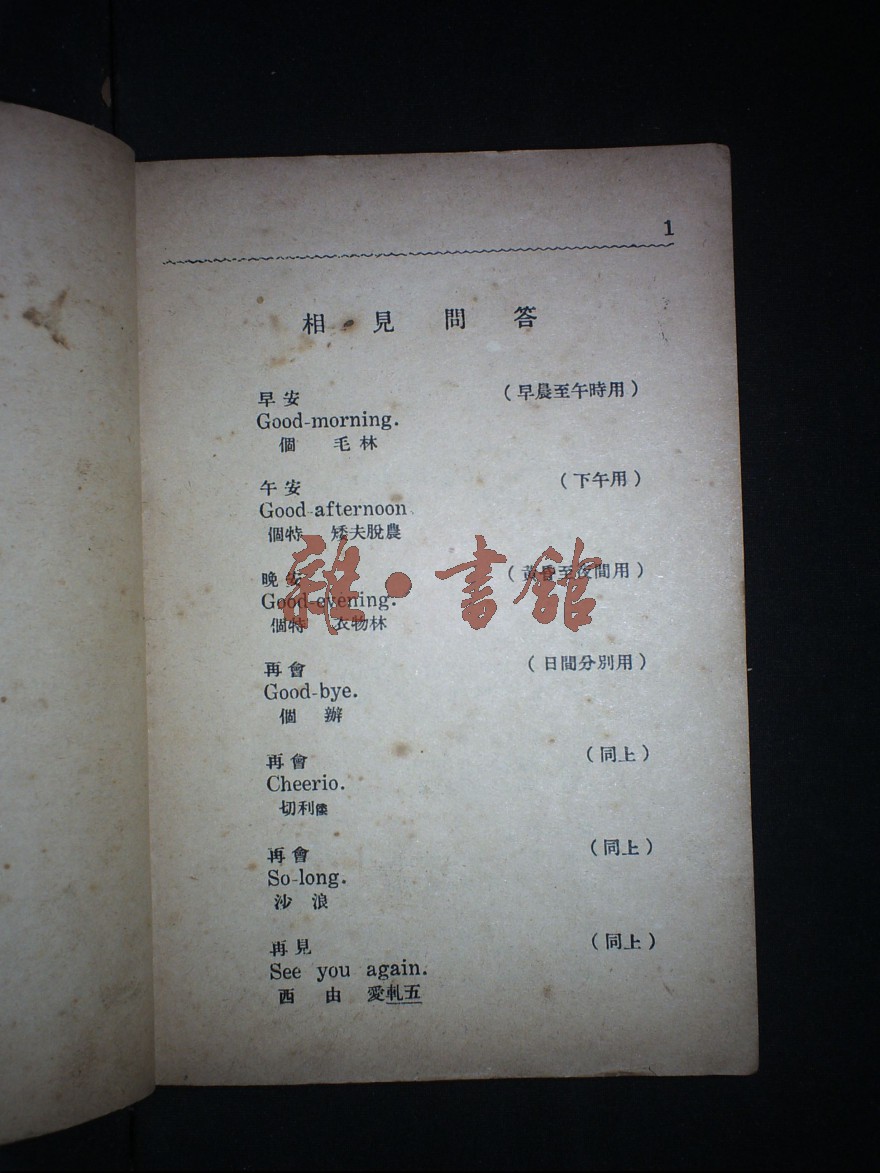 1
相見問答
早安 (早晨至午時用)
Good-morning.
個 毛林
午安 (下午用)
Good-afternoon
個特 矮夫脫農
晚安 (黃昏至夜間用)
Good-evening.
個特 衣物林
再會 (日間分別用)
Good-bye.
個 辦
再會 (同上)
Cheerio.
切利
再會 (同上)
So-long.
沙浪
再見 (同上)
See you again.
西 由 愛軋五
雜·書館